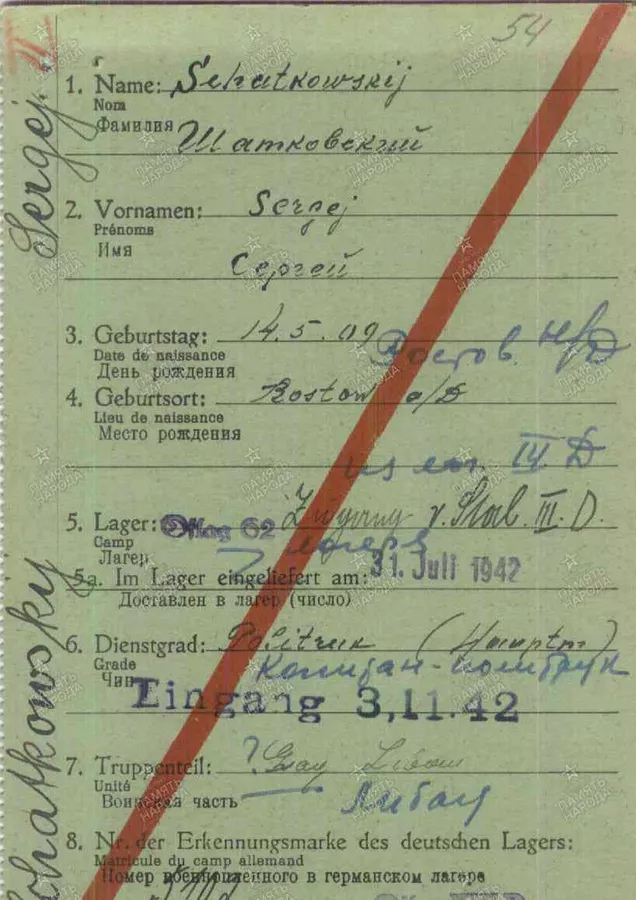 54
II
Schatkowskij Sergej
1. Name: Schatkowskij
Nom
Фамилия
Шатковский
2. Vornamen: Sergej
Prénoms
Имя
Сергей
3. Geburtstag: 14.5.09
Date de naissance
День рождения
Ростов н/Д
4. Geburtsort: Rostow a/D
Lieu de naissance
Место рождения
из лаг. III. D
5. Lager: Oflag 62 Zugang v. Stal. III. D.
Camp
Лагер
лагеря
5a. Im Lager eingeliefert am: 31. Juli 1942
Доставлен в лагер (число)
6. Dienstgrad: Politruk (Hauptm)
Grade
Чин
капитан-политрук
Eingang 3.11.42
7. Truppenteil: ? Libau
Unité
Воинская часть
Либау
8. Nr. der Erkennungsmarke des deutschen Lagers:
Matricule du camp allemand
Номер военнопленного в германском лагере
ПАМЯТЬ НАРОДА